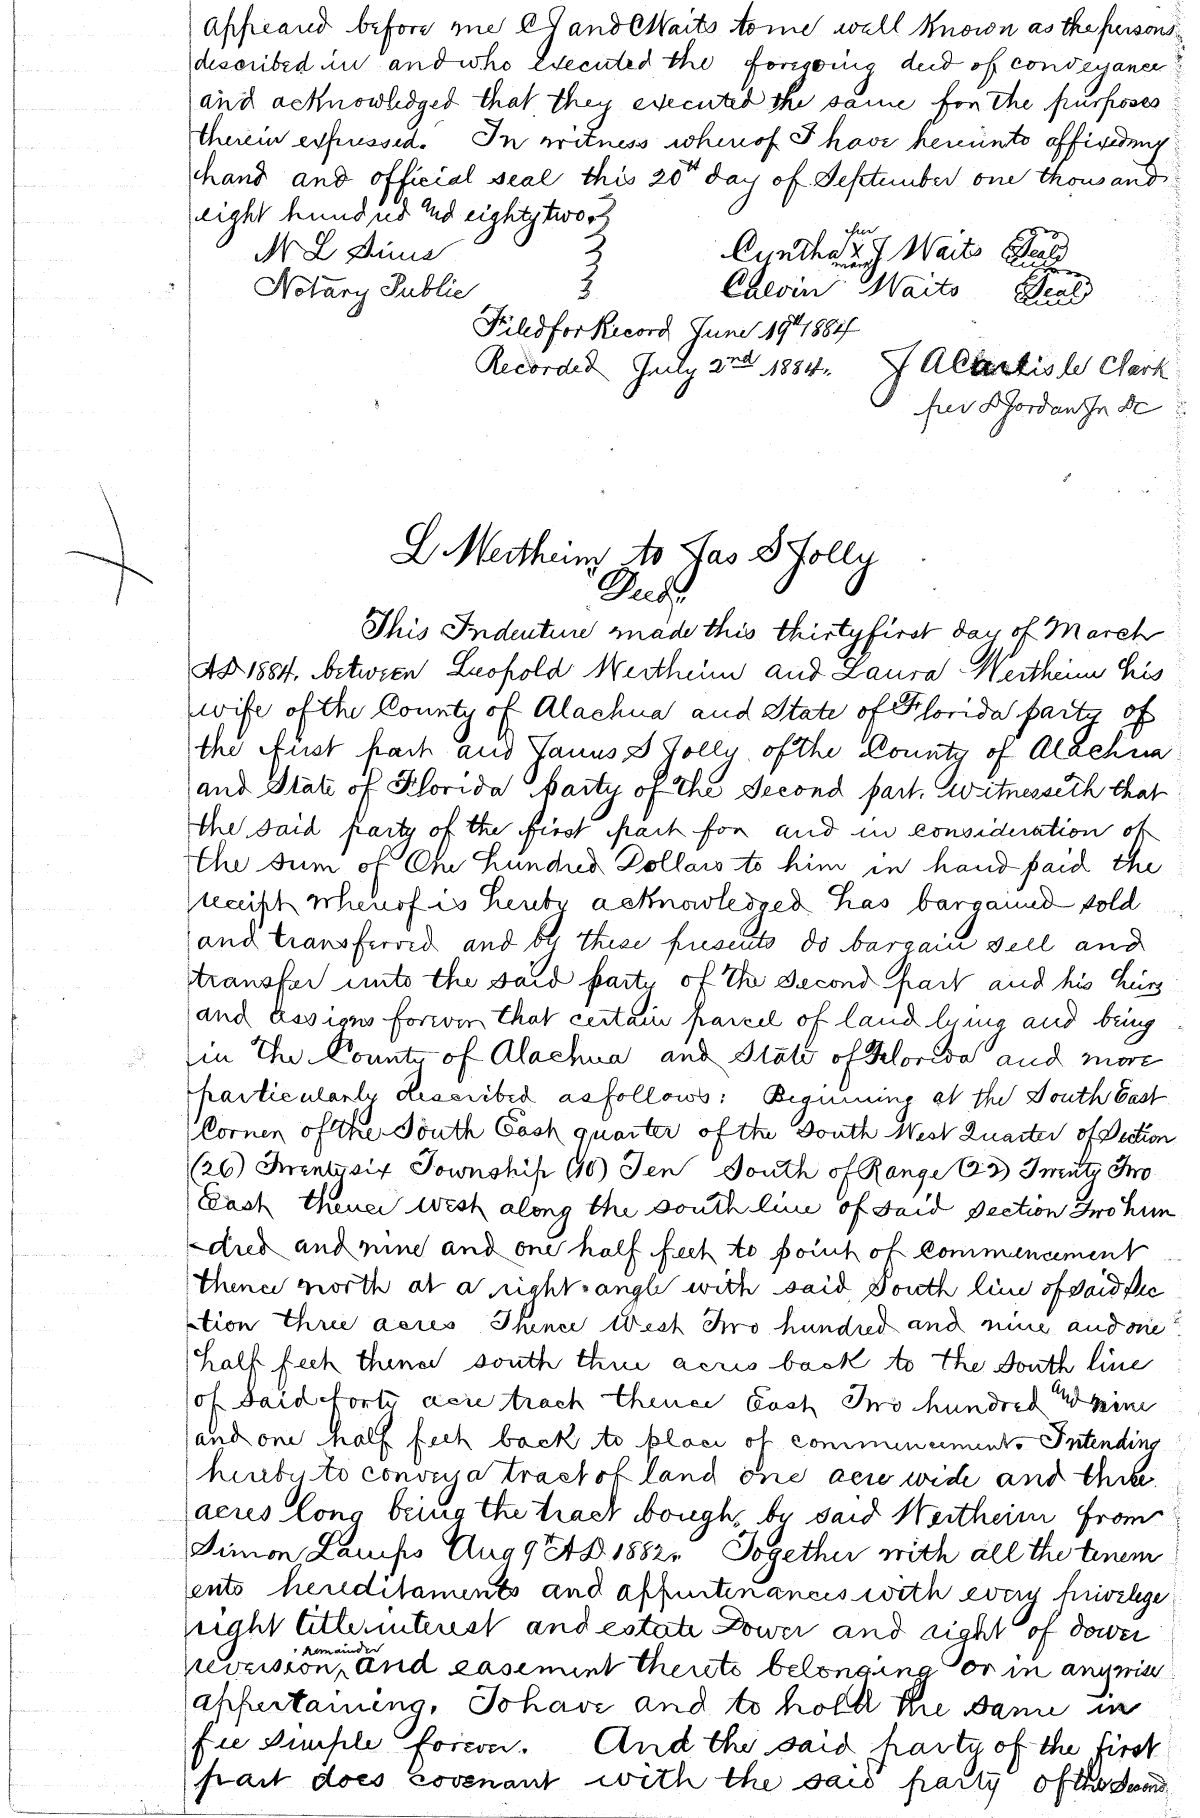 appeared before me C J and C Waits to me well known as the persons
described in and who executed the foregoing deed of conveyance
and acknowledged that they executed the same for the purposes
therein expressed. In witness whereof I have hereunto affixed my
hand and official seal this 20th day of September one thousand
eight hundred and eighty two.
N L Sims Cyntha her x mark J Waits Seal
Notary Public Calvin Waits Seal
Filed for Record June 19th 1884
Recorded July 2nd 1884. J A Carlisle Clerk
per S Jordan Jr DC
L Wertheim to Jas S Jolly
Deed.
This Indenture made this thirty first day of March
AD 1884. between Leopold Wertheim and Laura Wertheim his
wife of the County of Alachua and State of Florida party of
the first part and James S Jolly of the County of Alachua
and State of Florida party of the Second part. Witnesseth that
the said party of the first part for and in consideration of
the sum of One hundred Dollars to him in hand paid the
receipt whereof is hereby acknowledged has bargained sold
and transferred and by these presents do bargain sell and
transfer unto the said party of the second part and his heirs
and assigns forever that certain parcel of land lying and being
in the County of Alachua and State of Florida and more
particularly described as follows: Beginning at the South East
Corner of the South East quarter of the South West Quarter of Section
(26) Twenty six Township (10) Ten South of Range (22) Twenty Two
East thence west along the south line of said section Two hun
-dred and nine and one half feet to point of commencement
thence north at a right angle with said South line of said Sec
-tion three acres Thence West Two hundred and nine and one
half feet thence south three acres back to the South line
of said forty acre tract thence East Two hundred and nine
and one half feet back to place of commencement. Intending
hereby to convey a tract of land one acre wide and three
acres long being the tract bought by said Wertheim from
Simon Lamps Aug 9th AD. 1882. Together with all the tenem
ents hereditaments and appurtenances with every privelege
right title interest and estate Dower and right of dower
reversion, remainder and easement thereto belonging or in anywise
appertaining. To have and to hold the same in
fee simple forever. And the said party of the first
part does covenant with the said party of the Second